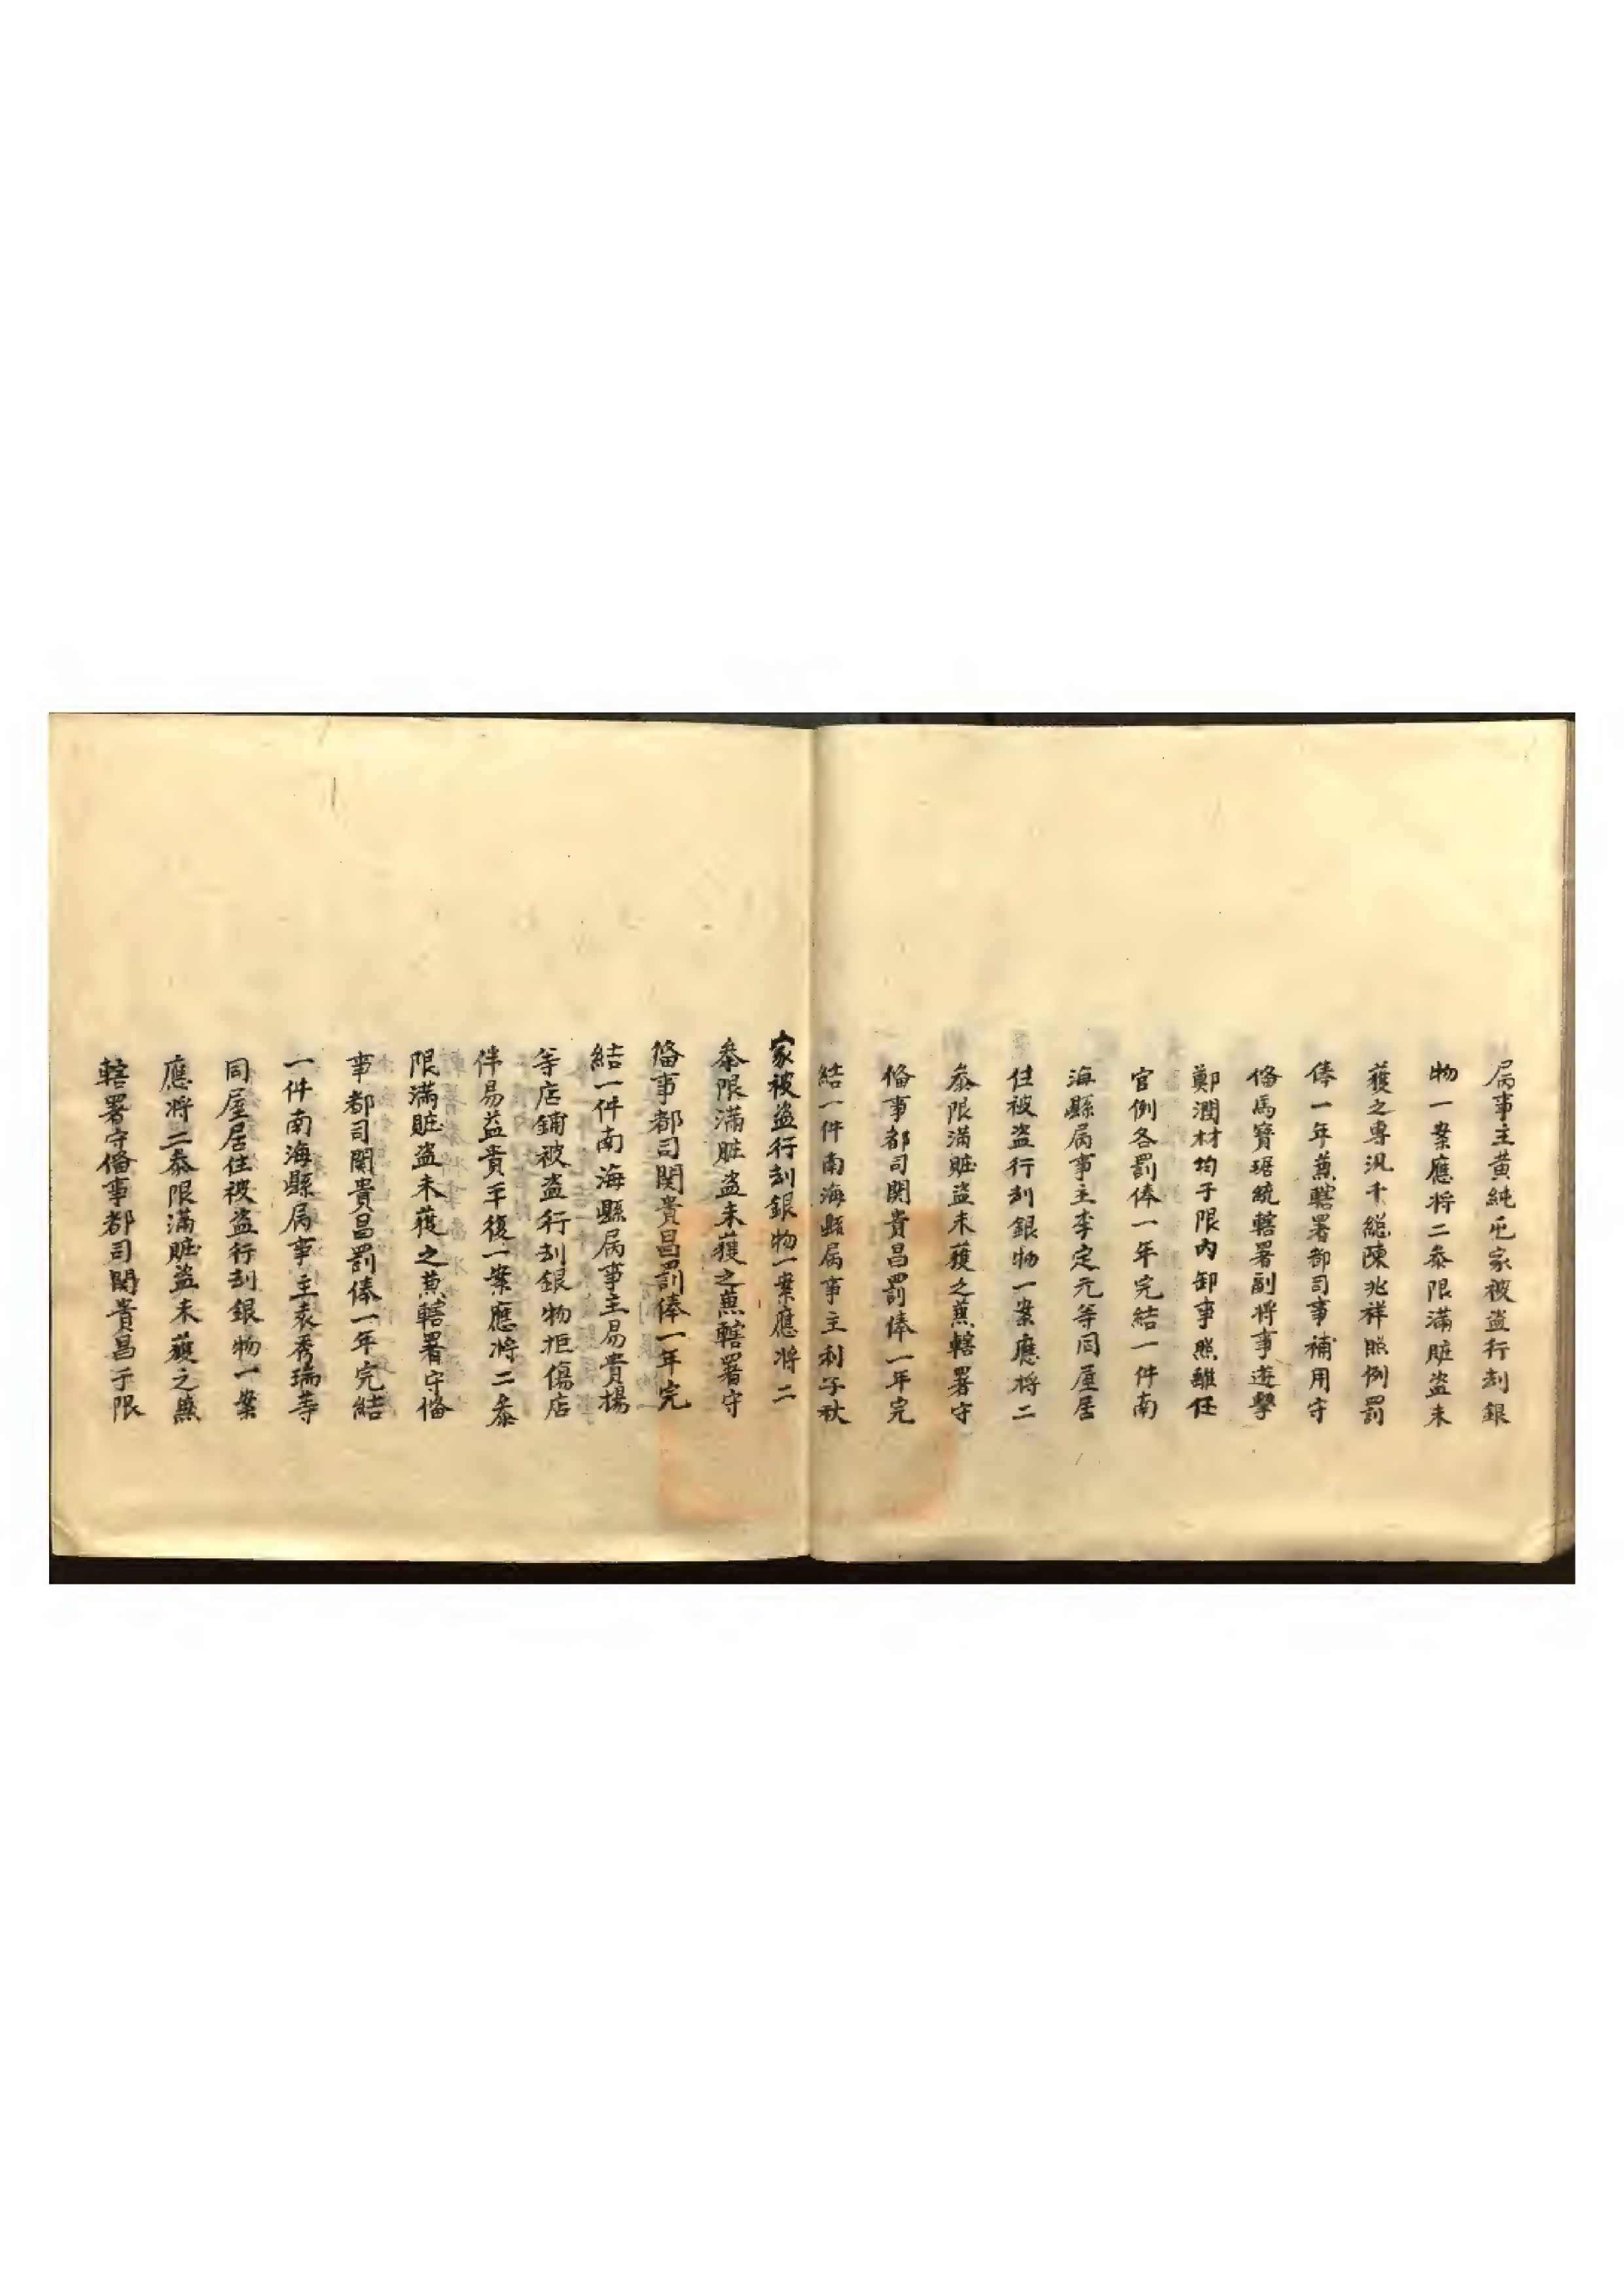 属事主黄純屯家被盗行刦銀
物一案應将二叅限滿賍盗未
獲之專汛千總陳兆祥照例罰
俸一年兼轄署都司事補用守
俻馬寶琚統轄署副将事遊擊
鄭潤材均于限内卸事照離任
官例各罰俸一年完結一件南
海縣属事主李定元等同屋居
住被盗行刦銀物一案應将二
叅限滿賍盗未獲之兼轄署守
俻事都司関貴昌罰俸一年完
結一件南海縣属事主利子秋
家被盗行刦銀物一案應将二
叅限滿賍盗未獲之兼轄署守
俻事都司関貴昌罰俸一年完
結一件南海縣属事主易貴揚
等店鋪被盗行刦銀物拒傷店
伴易益貴平復一案應将二叅
限滿賍盗未獲之兼轄署守俻
事都司関貴昌罰俸一年完結
一件南海縣属事主袁秀瑞等
同屋居住被盗行刦銀物一案
應将二叅限滿賍盗未獲之兼
轄署守俻事都司関貴昌于限